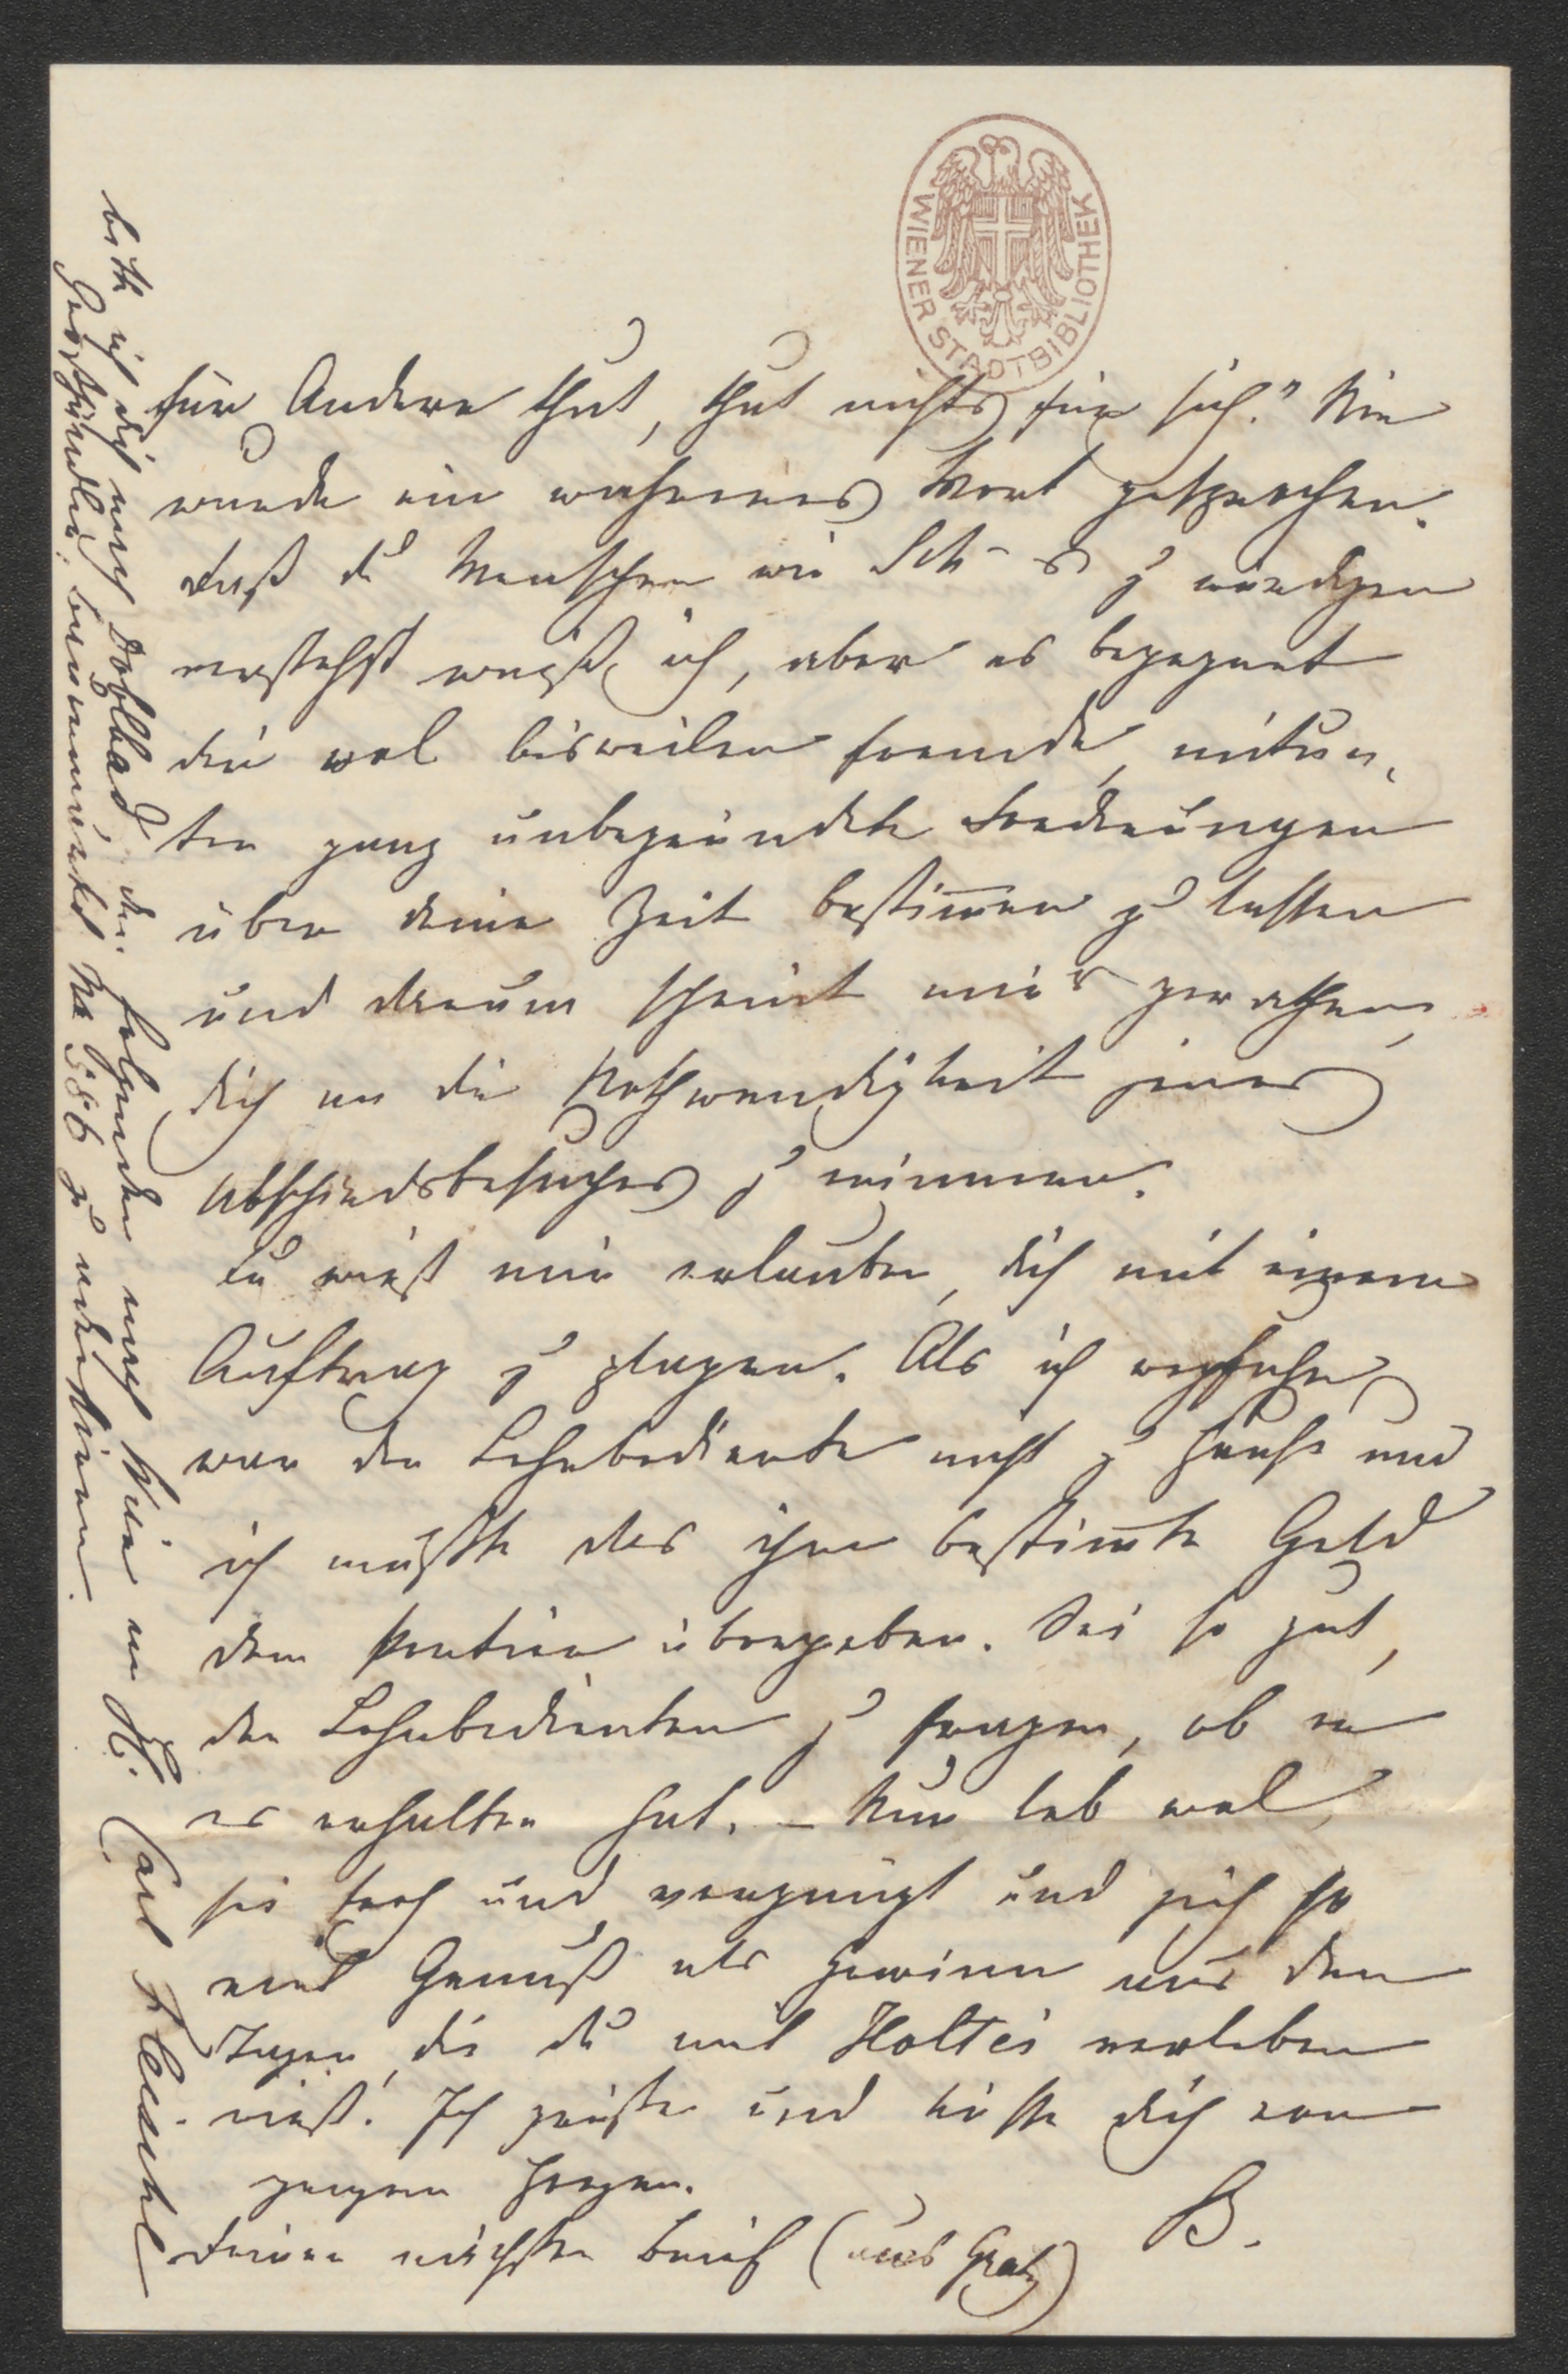 WIENER STADTBIBLIOTHEK
für Andere thut, thut nichts für sich." Nie
wurde ein wahreres Wort gesprochen.
Daß du Menschen wie Sch- s zu würdigen
verstehst weiß ich, aber es begegnet
dir wol bisweilen fremde, mitun-
ter ganz unbegründete Forderungen
über deine Zeit bestimmen zu lassen
und darum scheint mir's gerathen,
dich an die Nothwendigkeit jenes
Abschiedsbesuches zu erinnern.
Du wirst mir erlauben, dich mit einem
Auftrag zu plagen. Als ich wegfuhr,
war der Lohnbediente nicht zu Hause und
ich mußte das ihm bestimte Geld
dem Portier übergeben. Sei so gut,
den Lohnbedienten zu fragen, ob er
es erhalten hat. – Nun leb wol,
sei froh und vergnügt und zieh so
viel Genuß als Gewinn aus den
Tagen, die du mit Holtei verleben
wirst. Ich grüße und küsse dich von
ganzem Herzen.
B.
Deinen nächsten Brief (aus Gratz)
bitte ich dich nach Doblbad den folgenden nach Wien an H. Carl Fleischl
Großhändler. 586 zu adressiren.